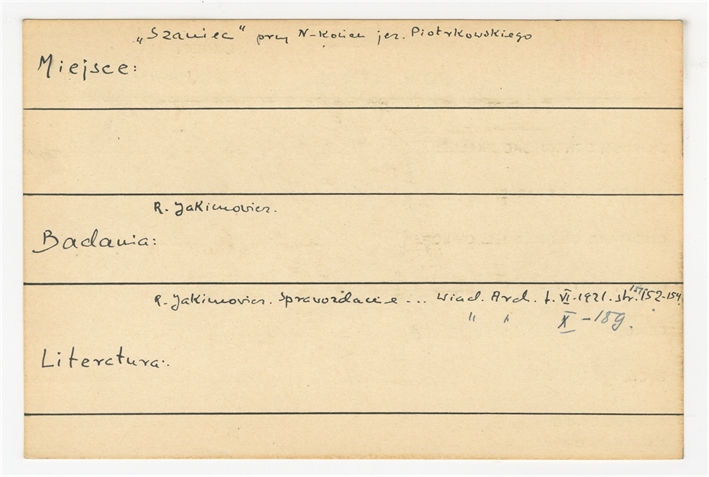 „Szaniec" przy N-Końcu jez. Piotrkowskiego
Miejsce:
R. Jakimowicz.
Badania:
R. Jakimowicz. Sprawozdanie ... Wiad. Arch. t. VI. 1921. str. 152-154
" " X - 189.
Literatura: